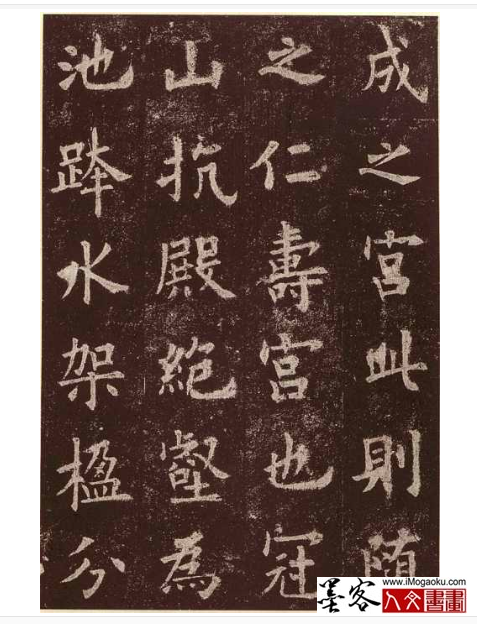 成之宮此則随
之仁壽宮也冠
山抗殿絕壑為
池跨水架楹分
墨客
www.iMogaoku.com
人文書畫